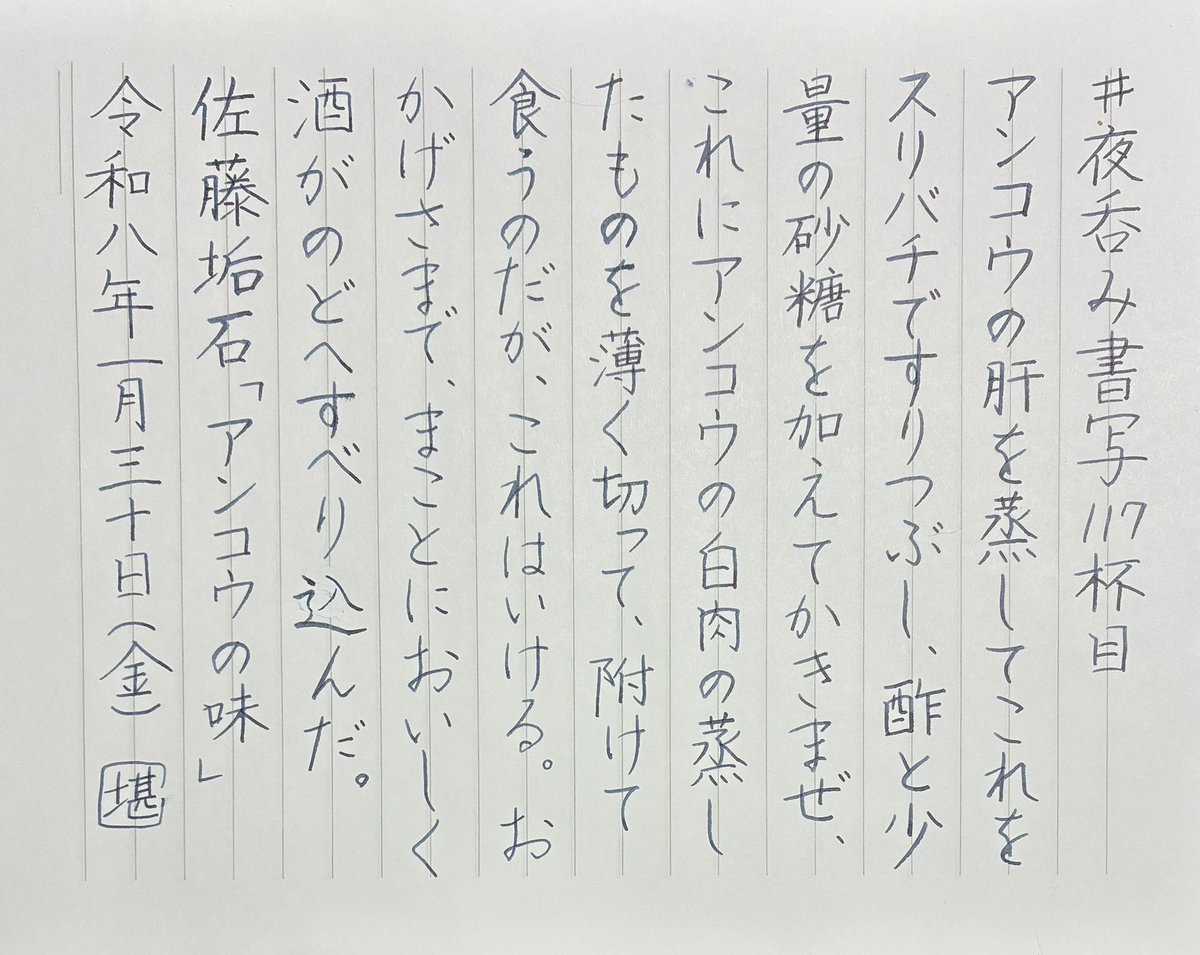 #夜呑み書写117杯目
アンコウの肝を蒸してこれを
スリバチですりつぶし、酢と少
量の砂糖を加えてかきまぜ、
これにアンコウの白肉の蒸し
たものを薄く切って、附けて
食うのだが、これはいける。お
かげさまで、まことにおいしく
酒がのどへすべり込んだ。
佐藤垢石「アンコウの味」
令和八年一月三十日(金) 堪